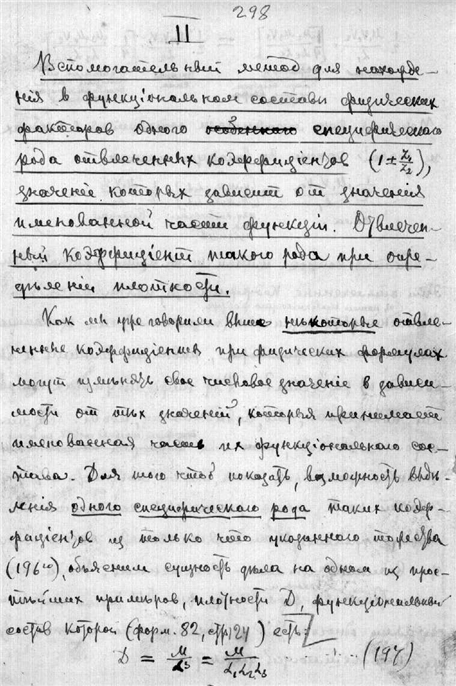 298
II
Вспомогательный метод для нахожде-
нія в функціональном составѣ физических
факторов одного особенного специфическаго
рода отвлеченных коэффиціентов (1 ± Z₁/Z₂),
значеніе которых зависит от значенія
именованной части функціи. Отвлечен-
ный коэффиціент такого рода при опре-
дѣленіи плотности.
Как мы уже говорили выше нѣкоторые отвле-
ченные коэффиціенты при физических формулах
могут измѣнять свое числовое значеніе в зависи-
мости от тѣх значеній, которыя принимает
именованная часть их функціональнаго сос-
тава. Для того чтоб показать, возможность выдѣ-
ленія одного специфического рода таких коэф-
фиціентов из только что указанного тождества
(196), объясним сущность дѣла на одном из прос-
тѣйших примѣров, плотности D, функціональный
состав которой (форм. 82, стр. 124) есть:
D = M/L³ = M/L₁L₂L₃ ..... (197)